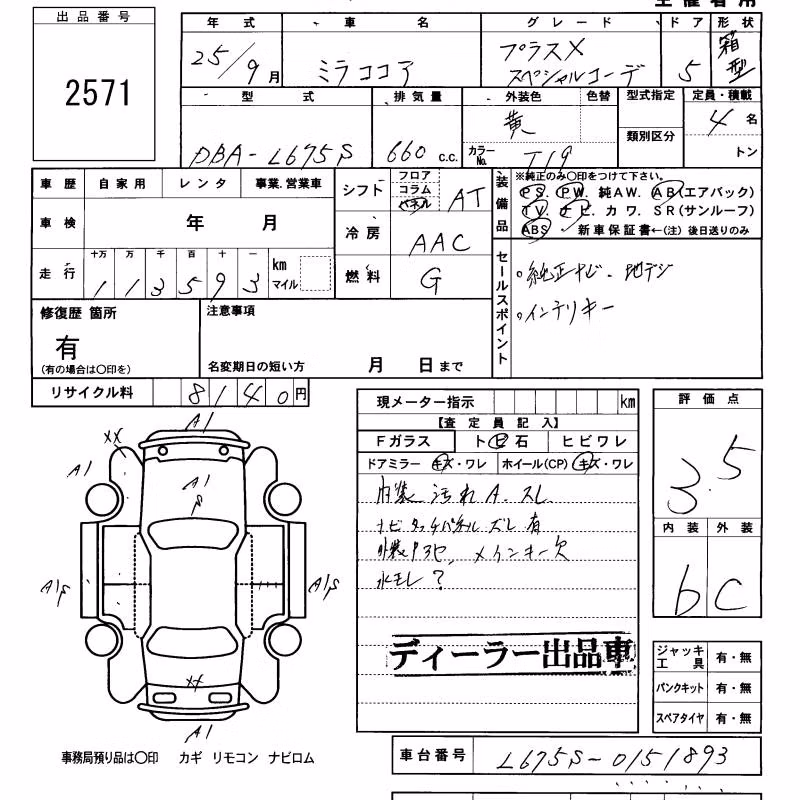 出品番号
2571
年式 車名 グレード ドア 形状
25/9月 ミラココア プラスX
スペシャルコーデ 5 箱型
型式 排気量 外装色 色替 型式指定 定員・積載
DBA-L675S 660 c.c. 黄 類別区分 4名
カラーNo. T19 トン
車歴 自家用 レンタ 事業.営業車
車検 年 月
走行 十万 万 千 百 十 一
1 1 3 5 9 3 km
マイル
シフト フロア
コラム
パネル AT
冷房 AAC
燃料 G
装備品 ※純正のみ○印をつけて下さい。
PS. PW. 純AW. AB(エアバック)
TV. ナビ. カワ. SR(サンルーフ)
ABS. 新車保証書←(注)後日送りのみ
セールスポイント
○純正ナビ・地デジ
○インテリキー
修復歴 箇所
有
(有の場合は○印を)
注意事項
名変期日の短い方 月 日まで
リサイクル料 8140円
現メーター指示 km
【査定員記入】
Fガラス トビ石 ヒビワレ
ドアミラー キズ・ワレ ホイール(CP) キズ・ワレ
内装 汚れ A. スレ
ナビタッチパネル ズレ 有
メインキー欠
水モレ?
ディーラー出品車
評価点
3.5
内装 外装
b C
ジャッキ工具 有・無
パンクキット 有・無
スペアタイヤ 有・無
A1
XX
A1
A1
S
A1S
A1S
XX
A1
事務局預り品は○印 カギ リモコン ナビロム
車台番号 L675S-0151893